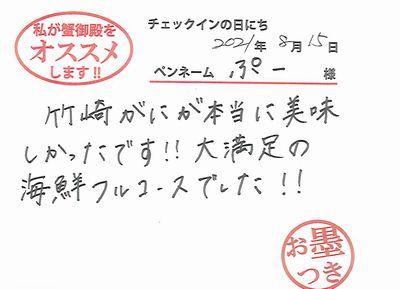 私が蟹御殿を
オススメ
します!!
チェックインの日にち
2021年 8月 15日
ペンネーム ぷー 様
竹崎がにが本当に美味
しかったです!! 大満足の
海鮮フルコースでした!!
お墨
つき